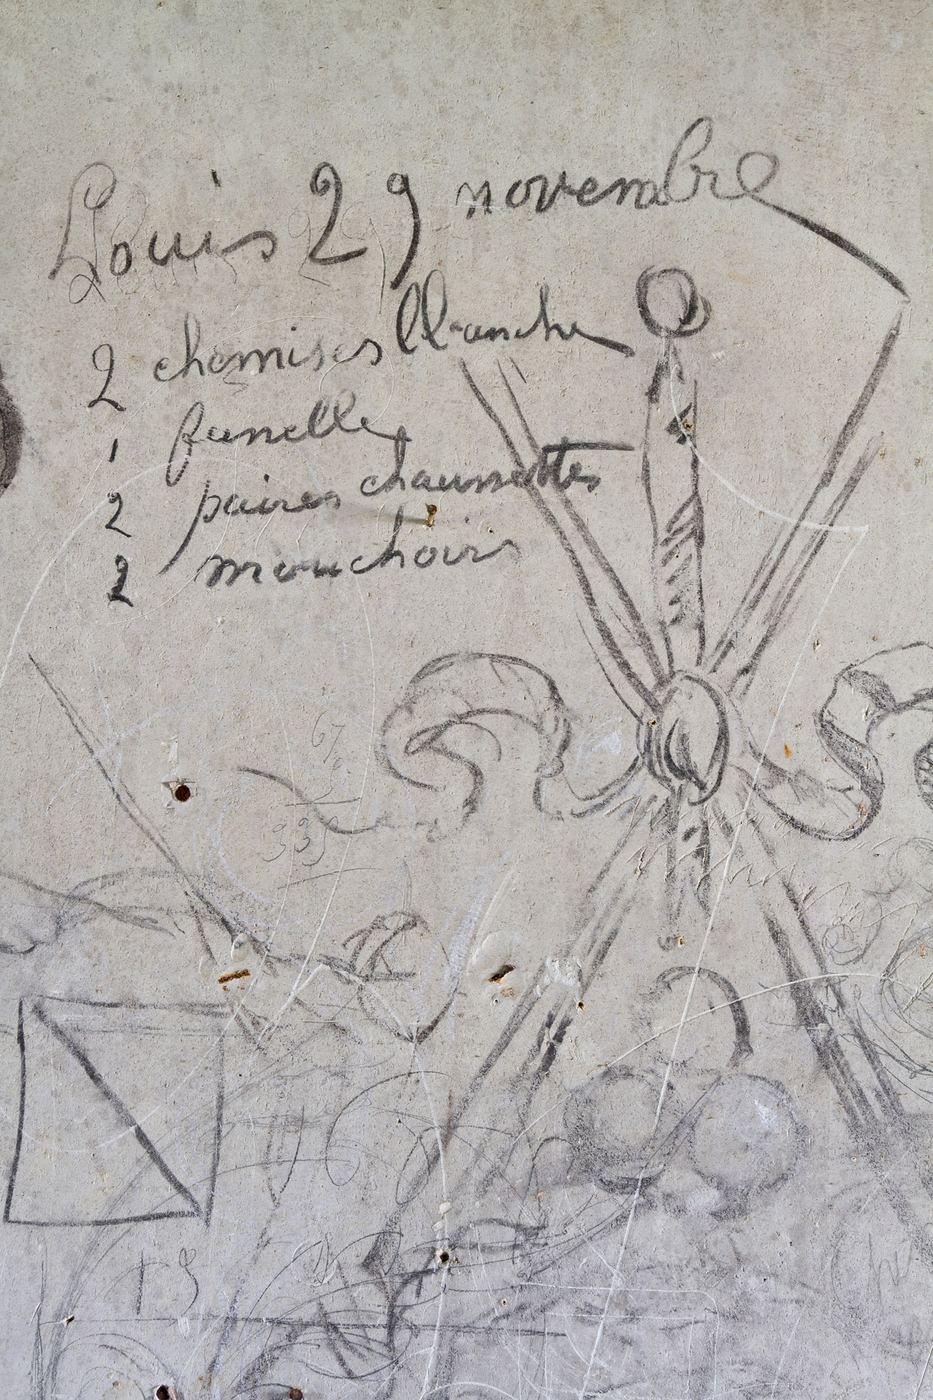 Louis 29 novembre
2 chemises blanche
1 fanelle
2 paires chaussettes
2 mouchoirs
67
335
19